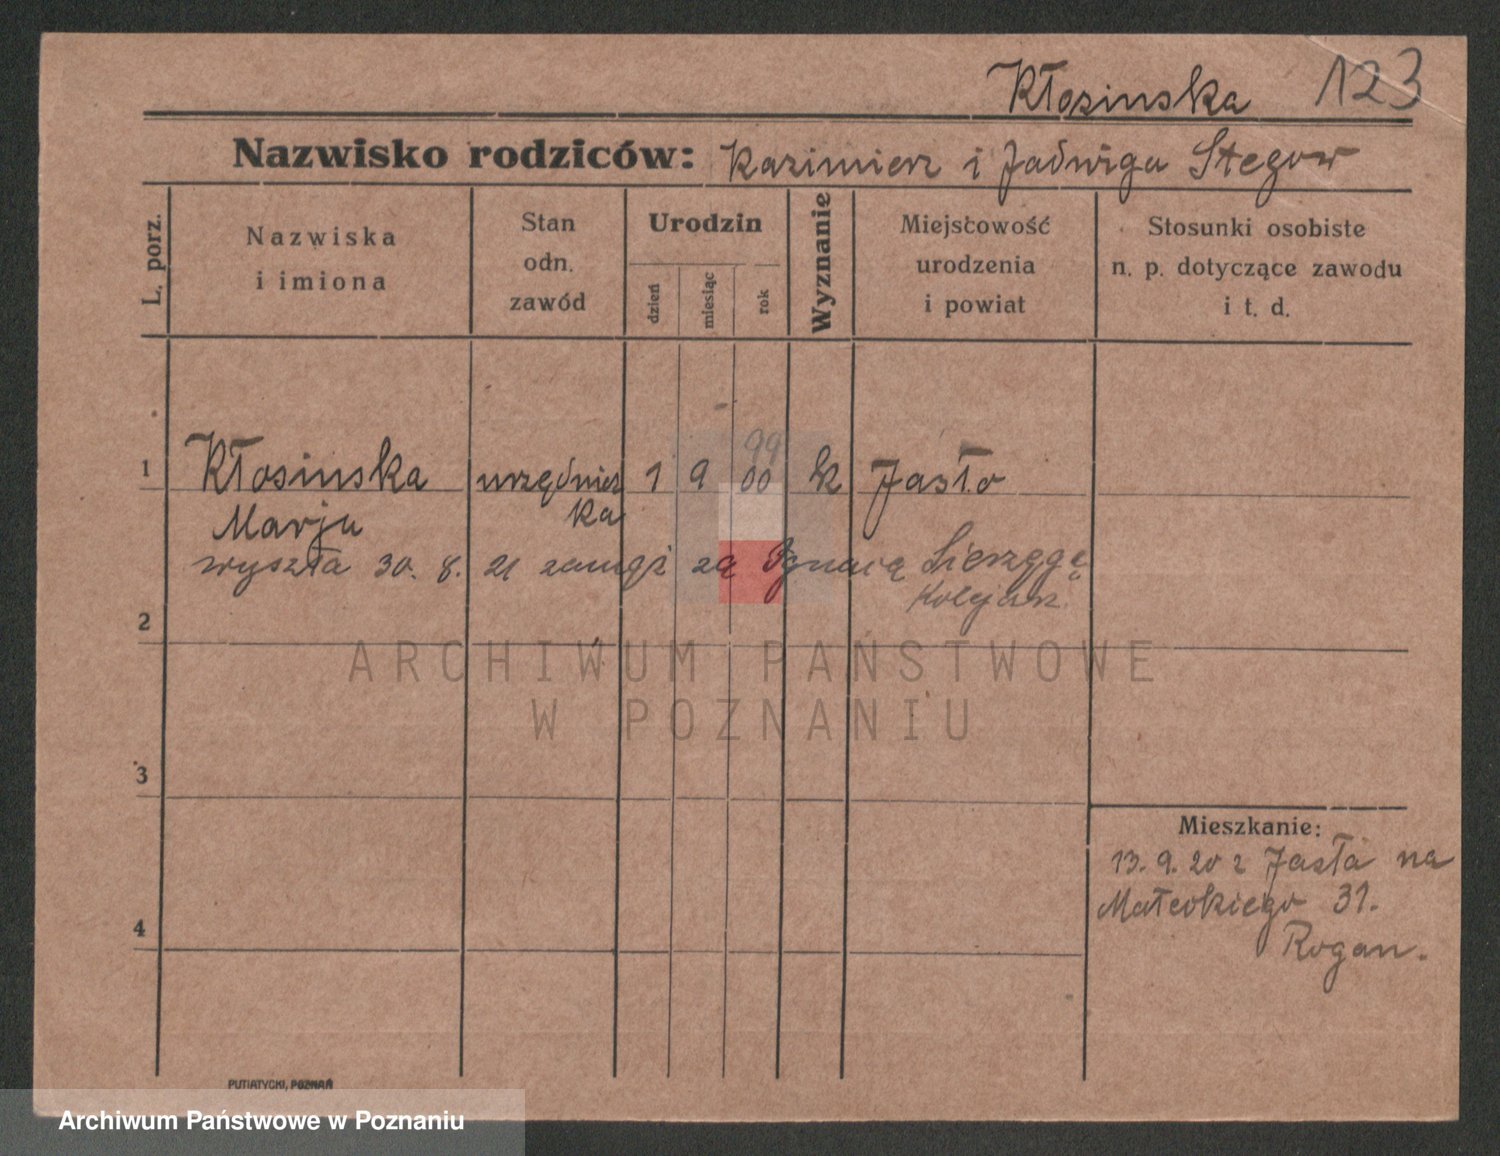 Kłosinska 123
Nazwisko rodziców: Kazimierz i Jadwiga Stegow
L. porz.
Nazwiska i imiona
Stan odn. zawód
Urodzin
dzień
miesiąc
rok
Wyznanie
Miejscowość urodzenia i powiat
Stosunki osobiste n. p. dotyczące zawodu i t. d.
99
1 Kłosinska urzędnicz 1 9 00 k Jasło
Marja ka
wyszła 30. 8. 21 zamąż za Ignacą
Kolejarz
2
3
4
Mieszkanie:
13. 9. 20 z Jasła na
Małeckiego 31.
Rogan.
PUTIATYCKI, POZNAŃ
ARCHIWUM PAŃSTWOWE
W POZNANIU
Archiwum Państwowe w Poznaniu